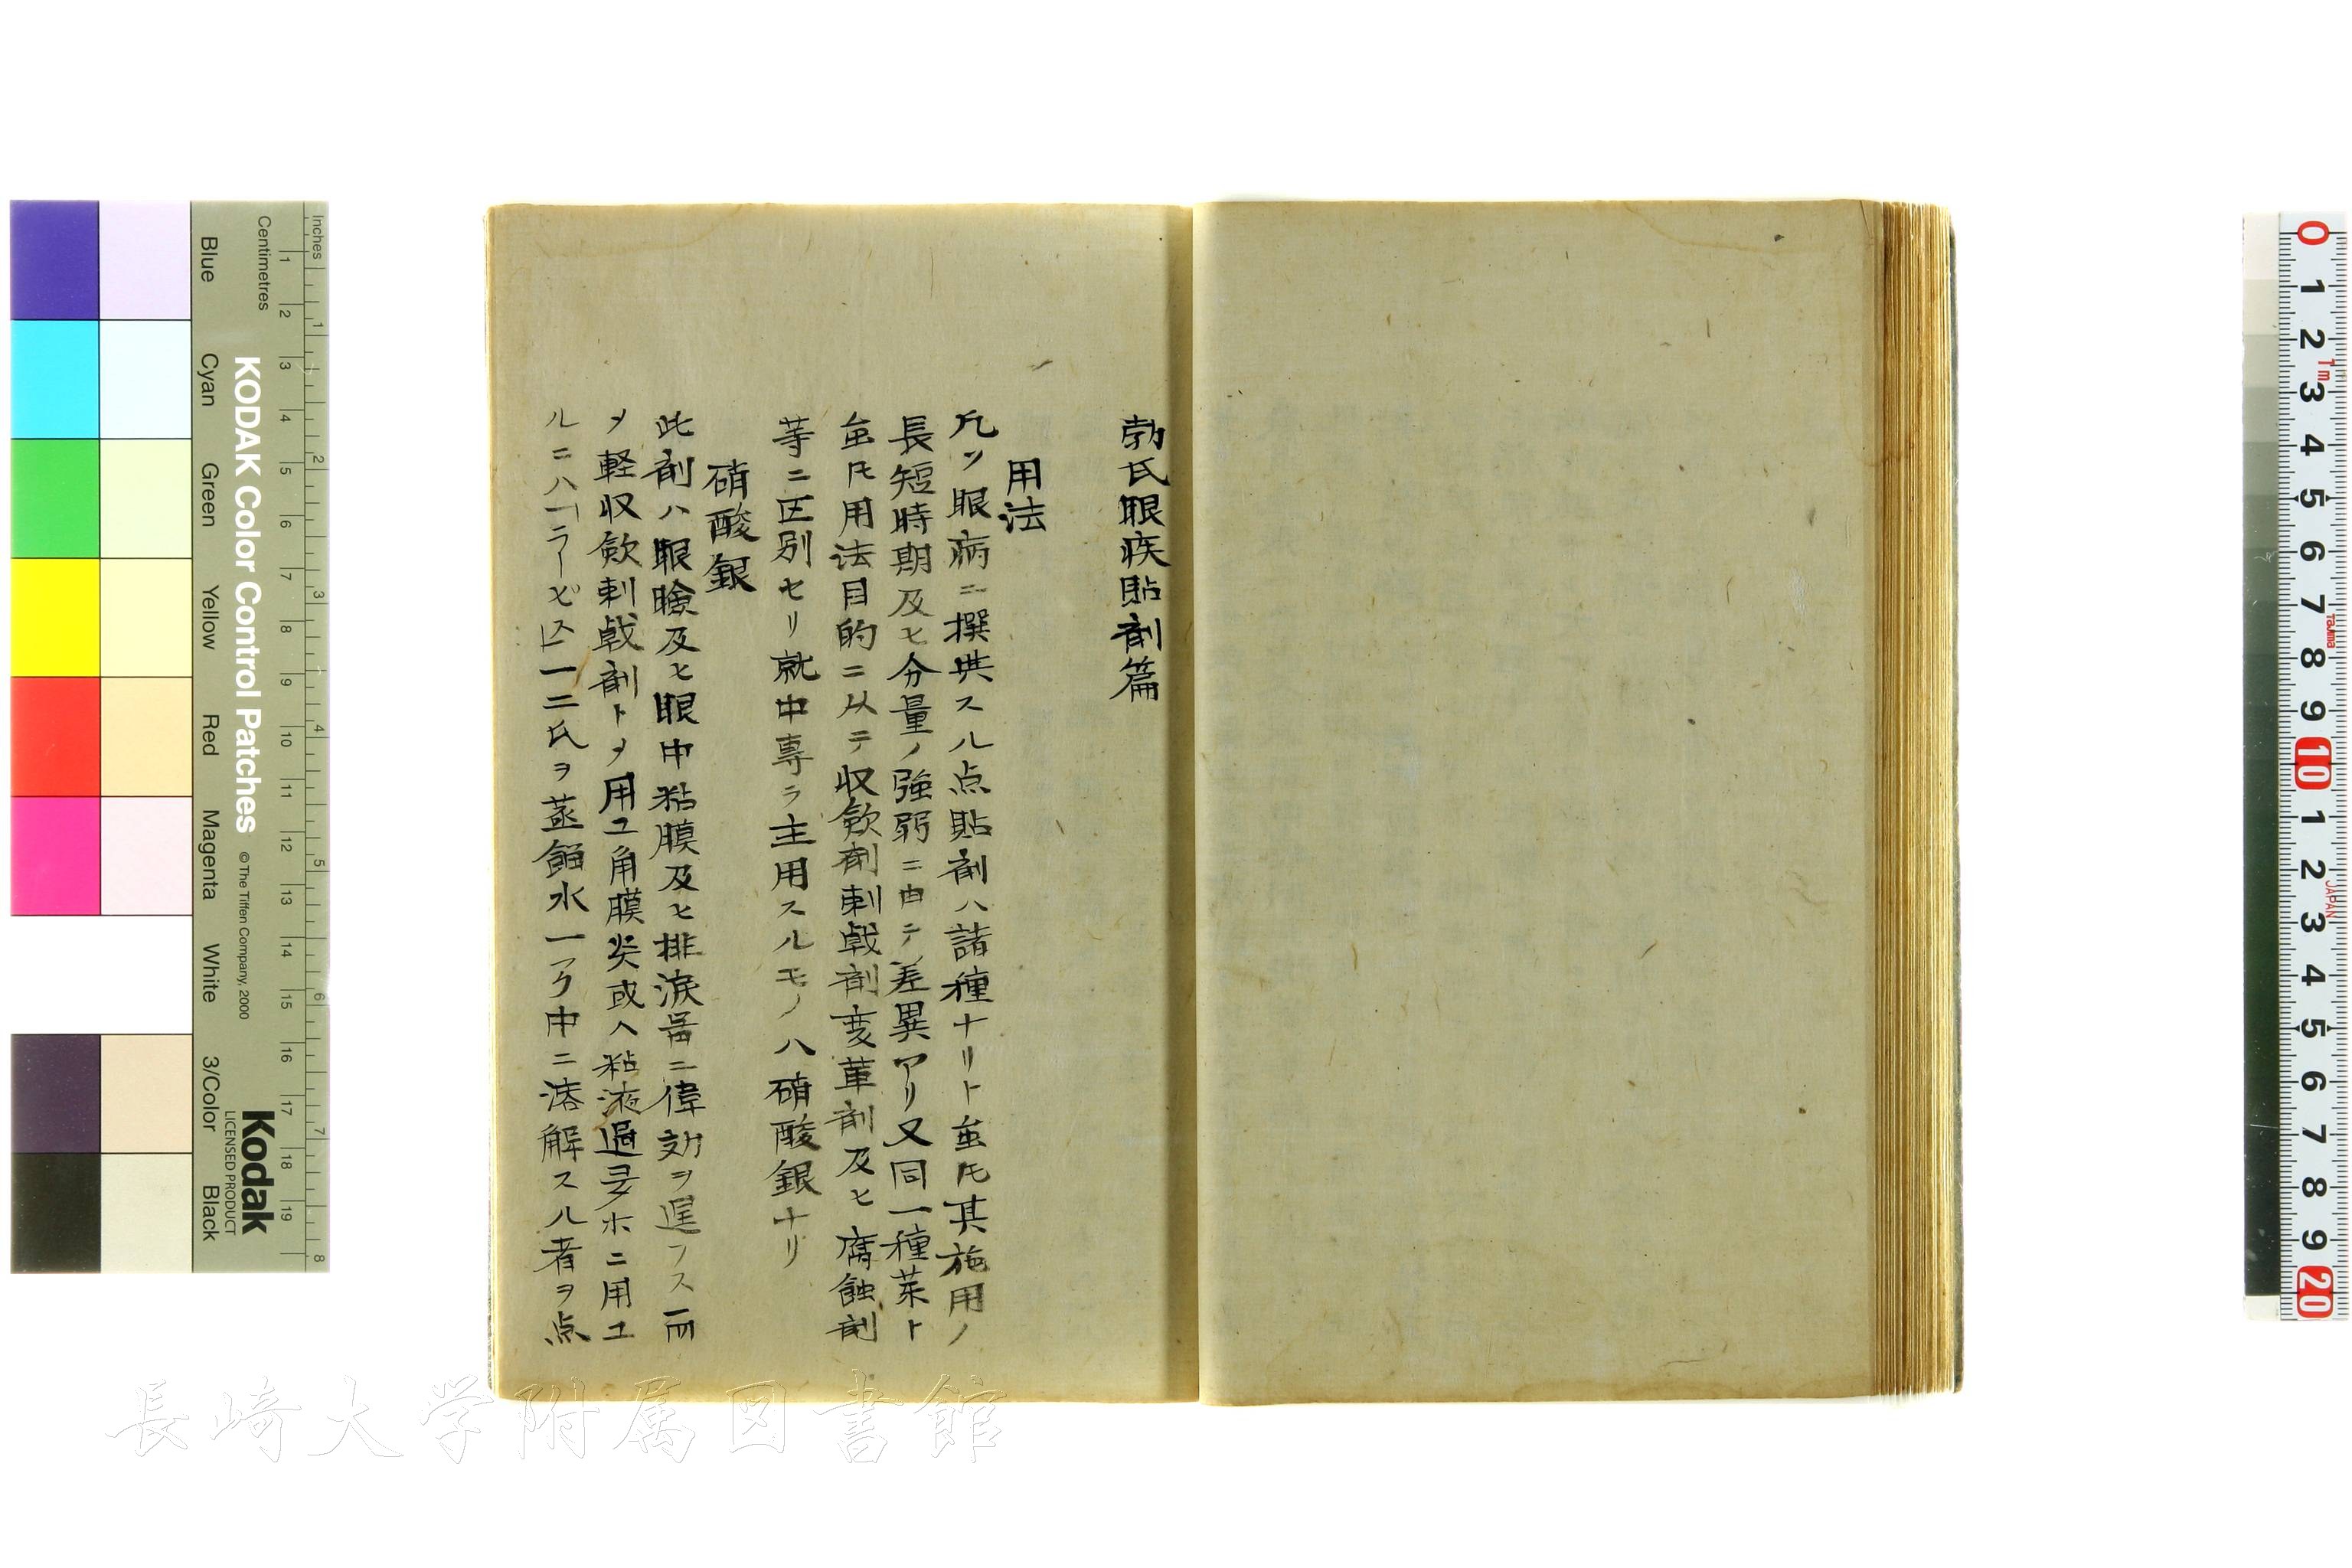 勃氏眼疾貼剤篇
用法
凡ソ眼病ニ撰*スル点貼剤ハ諸種ナリト雖𪜈其施用ノ
長短時期及ヒ分量ノ強弱ニ由テ差異アリ又同一種薬ト
雖𪜈用法目的ニ从テ収歛剤刺戟剤変革剤及ヒ腐蝕剤
等ニ区別セリ就中専ラ主用スルモノハ硝酸銀ナリ
硝酸銀
此剤ハ眼瞼及ヒ眼中粘膜及ヒ排涙器ニ偉効ヲ逞フス而
メ軽収歛刺戟剤トメ用ユ角膜炎或ハ粘液過多ホニ用ユ
ルニハ「ラーピス」一二氏ヲ蒸餾水一ヲ中ニ溶解スル者ヲ点
長崎大学附属図書館
Inches
Centimetres
KODAK Color Control Patches
© The Tiffen Company, 2000
Kodak
LICENSED PRODUCT
Blue
Cyan
Green
Yellow
Red
Magenta
White
3/Color
Black
1 2 3 4 5 6 7 8 9 10 11 12 13 14 15 16 17 18 19
1 2 3 4 5 6 7 8
0 1 2 3 4 5 6 7 8 9 10 1 2 3 4 5 6 7 8 9 20
1m
Tajima
JAPAN